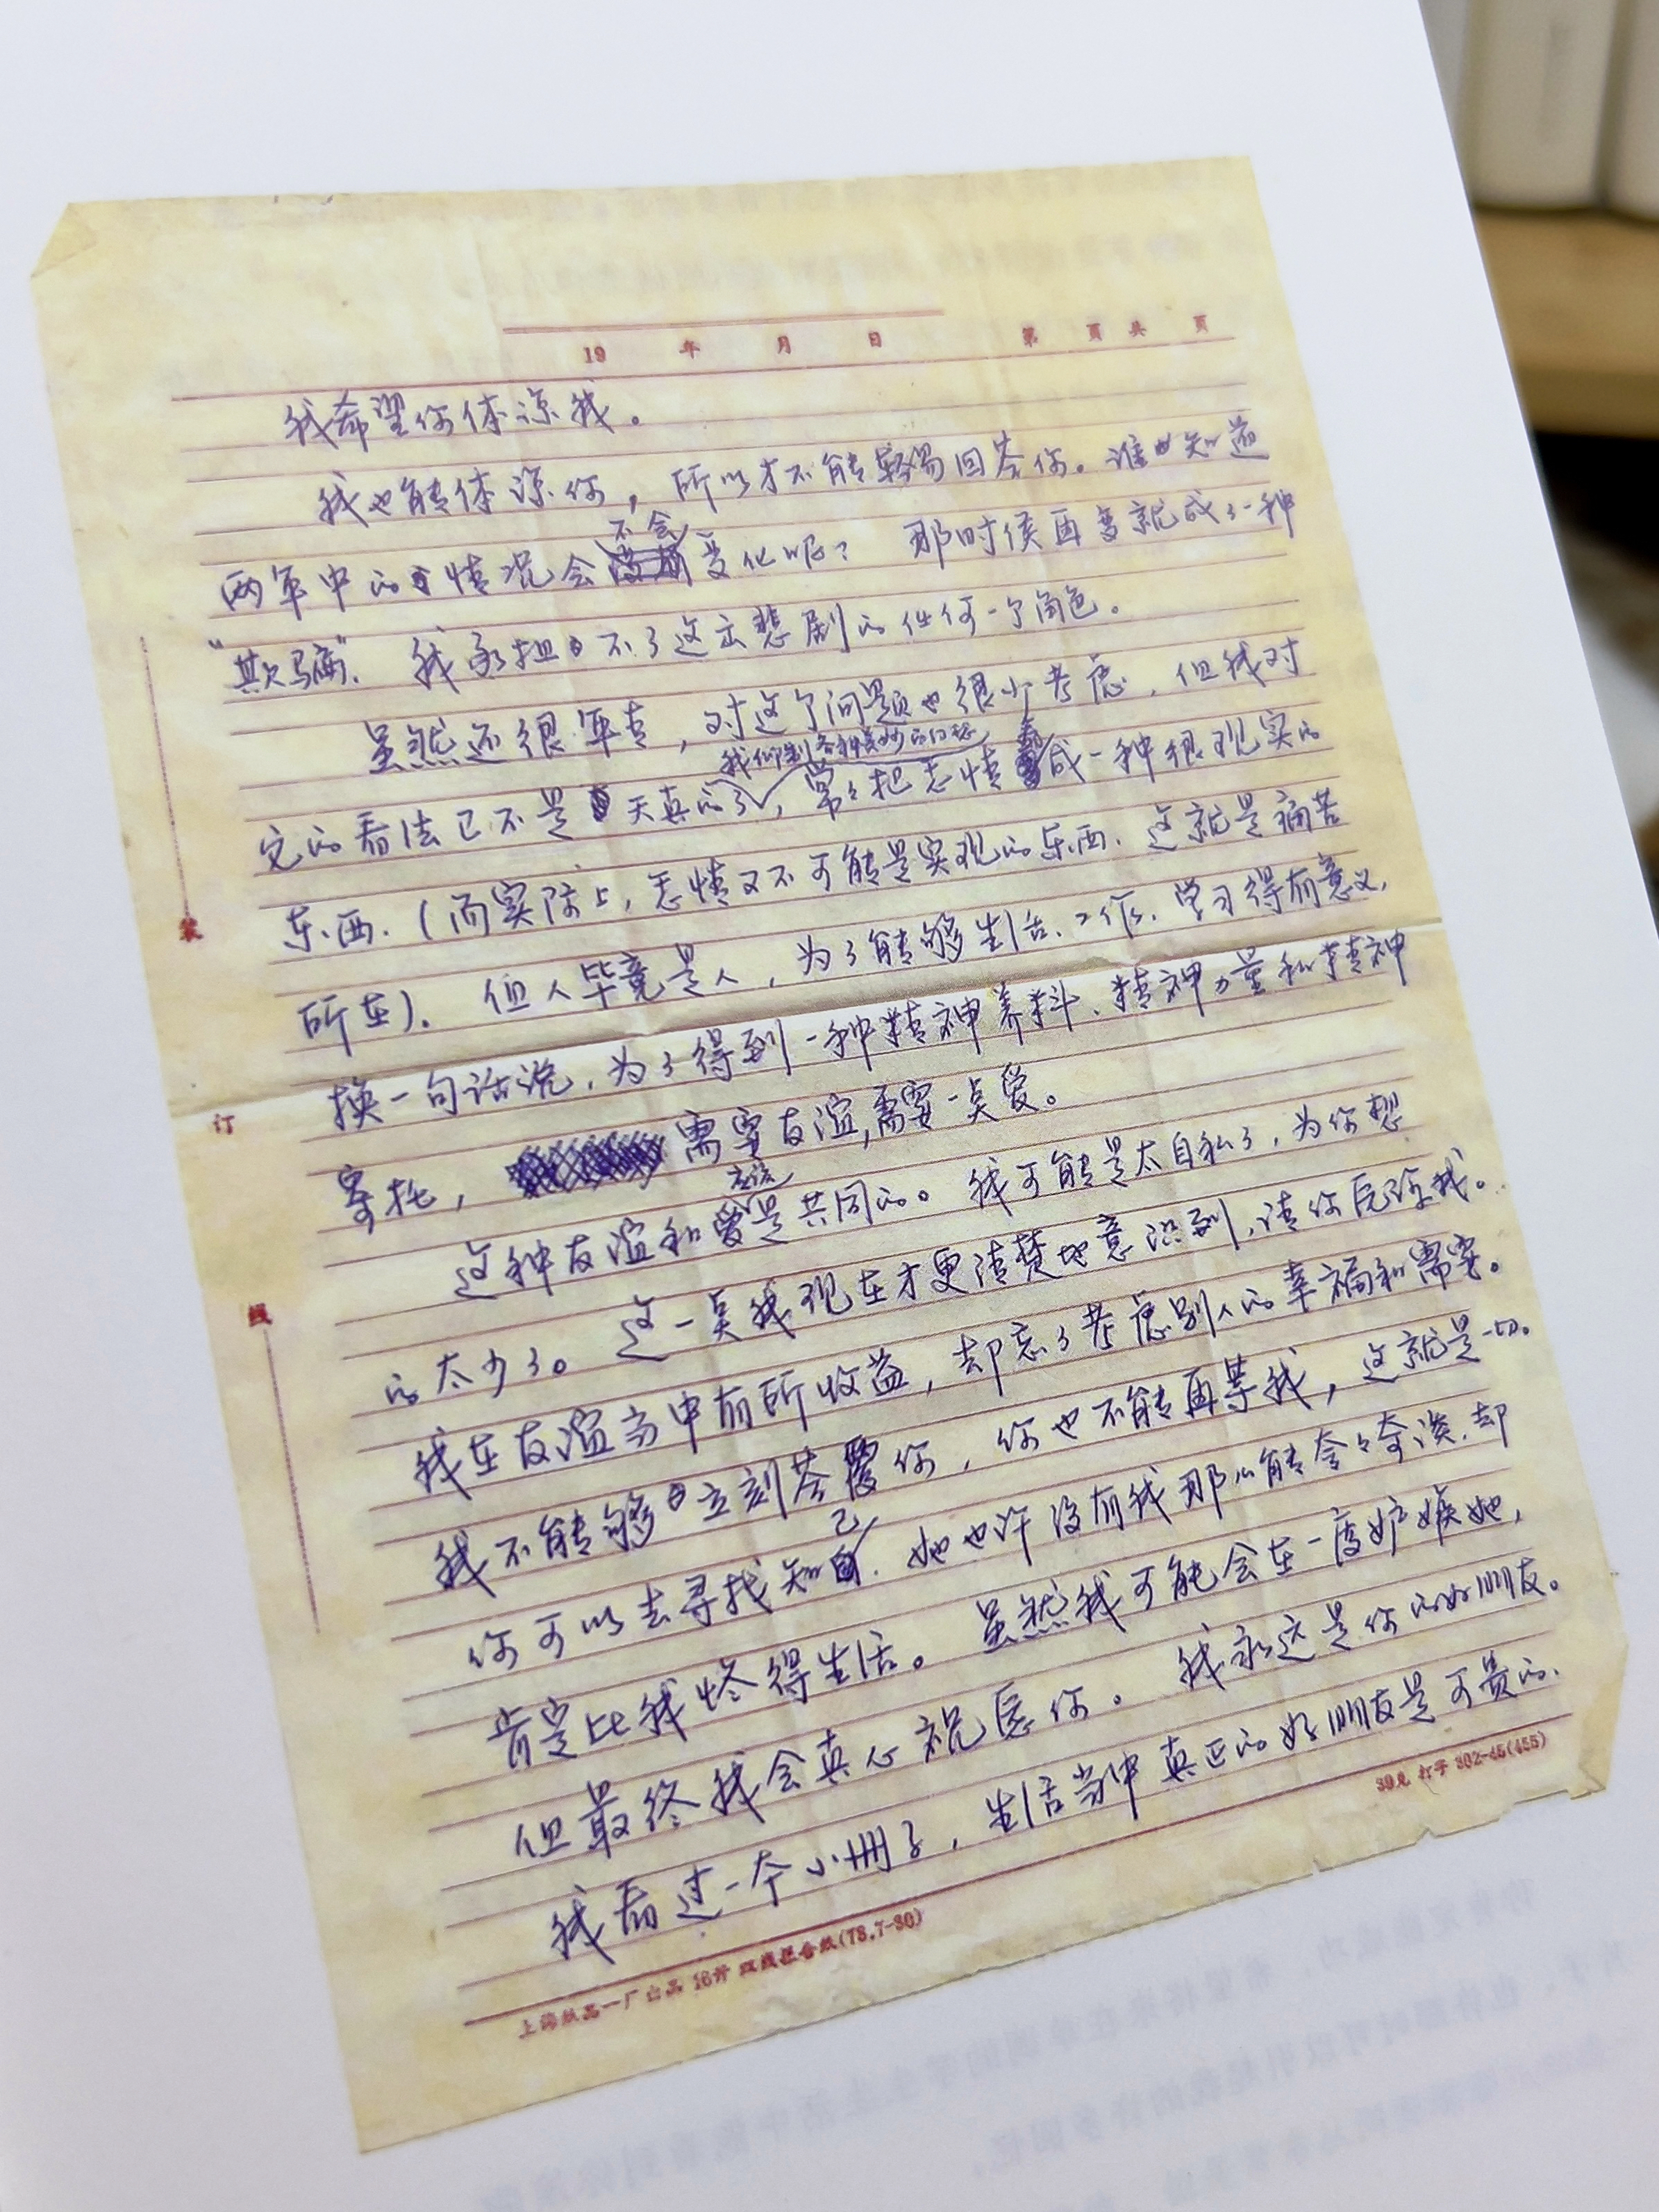 19 年 月 日 第 页 共 页
我希望你体谅我。
我也能体谅你，所以才不能轻易回答你。谁也知道
不会
两年中的情况会变化呢？ 那时候再变就成了一种
“欺骗”. 我承担不了这出悲剧的任何一个角色。
虽然还很年青，对这个问题也很少考虑，但我对
我仰制各种美妙的幻想
它的看法已不是天真的了，常々把恋情看成一种很现实的
东西.（而实际上，恋情又不可能是实现的东西. 这就是痛苦
所在）. 但人毕竟是人，为了能够生活、工作、学习得有意义，
换一句话说，为了得到一种精神养料、精神力量和精神
寄托， 需要友谊，需要一点爱。
应该
这种友谊和爱是共同的。我可能是太自私了，为你想
的太少了。 这一点我现在才更清楚地意识到，请你原谅我。
我在友谊当中有所收益，却忘了考虑别人的幸福和需要。
我不能够立刻答覆你，你也不能再等我，这就是一切。
己
你可以去寻找知. 她也许没有我那么能夸夸奇谈，却
肯定比我懂得生活。 虽然我可能会在一度妒嫉她，
但最终我会真心祝愿你。 我永远是你的好朋友。
我看过一个小册子，生活当中真正的好朋友是可贵的.
装
订
线
39克 打字 302-45(455)
上海纸品一厂出品 16开 双线报告纸(78.7-80)